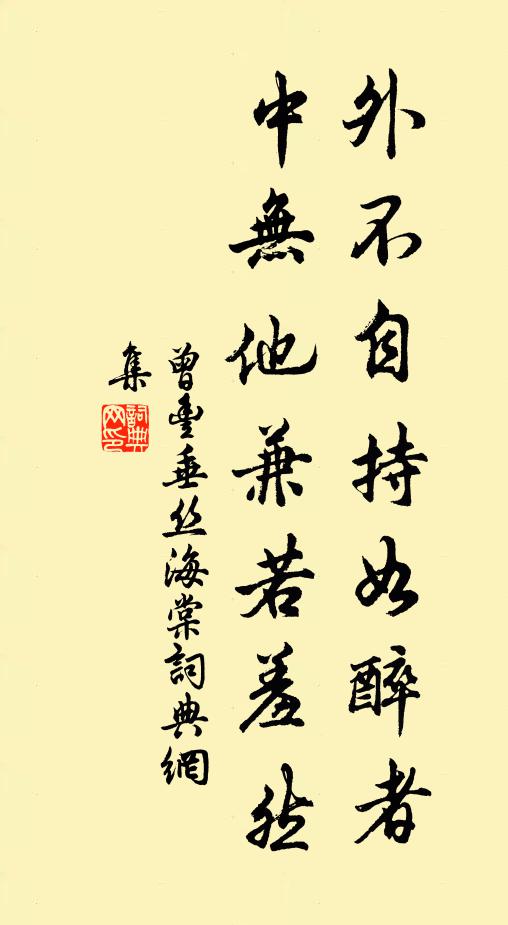 外不自持如醉者
中無他兼若羞然
曾豐垂丝海棠詞典網
集
詞典网印